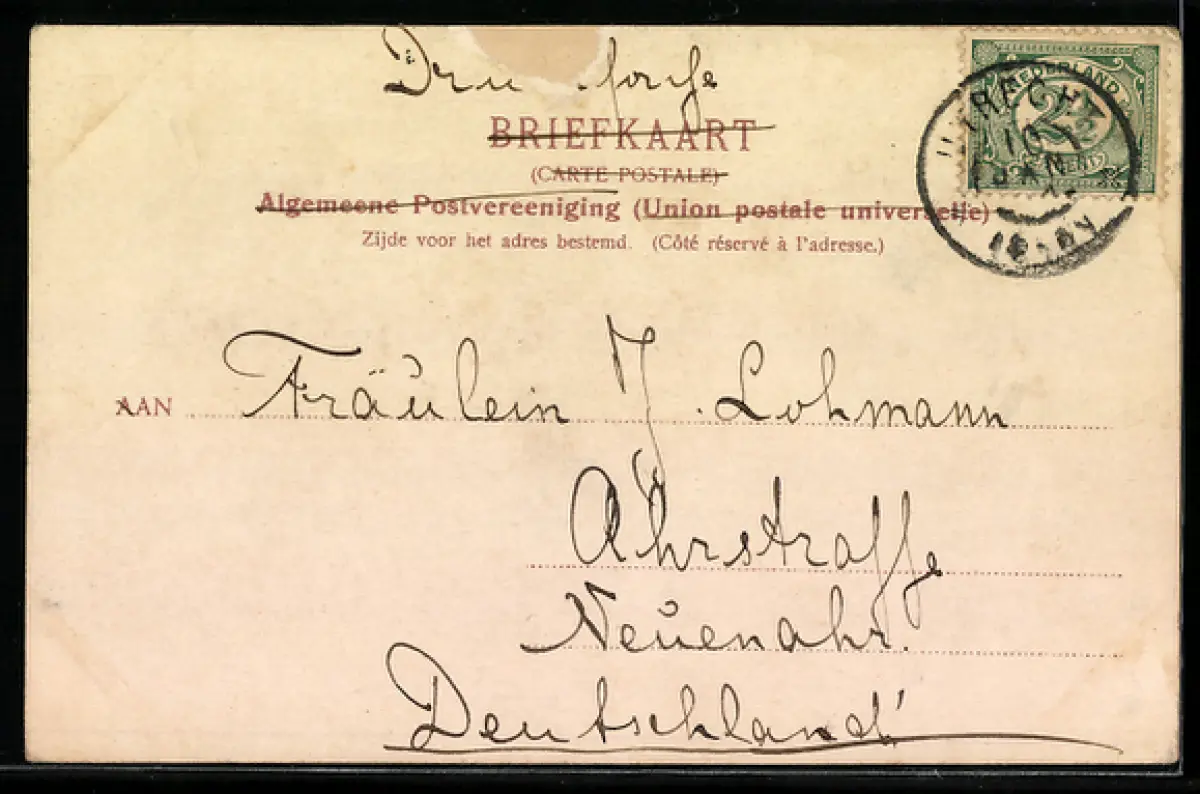 BRIEFKAART
(CARTE POSTALE)
Algemeene Postvereeniging (Union postale universelle)
Zijde voor het adres bestemd. (Côté réservé à l'adresse.)
NEDERLAND
2½
CENT
UTRECHT
10
JAN
AAN Fräulein J. Lohmann
Ahrstraffe
Neuenahr.
Deutschland